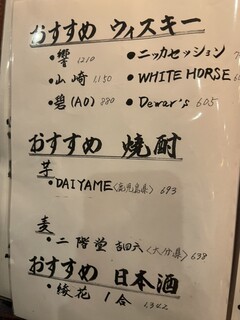 おすすめ ウィスキー
・響 1210 ・ニッカセッション
・山崎 1150 ・WHITE HORSE
・碧(AO) 880 ・Dewar's 605
おすすめ 焼酎
芋
・DAIYAME〈鹿児島県〉693
麦
・二階堂 吉四六〈大分県〉638
おすすめ 日本酒
・綾花 1合